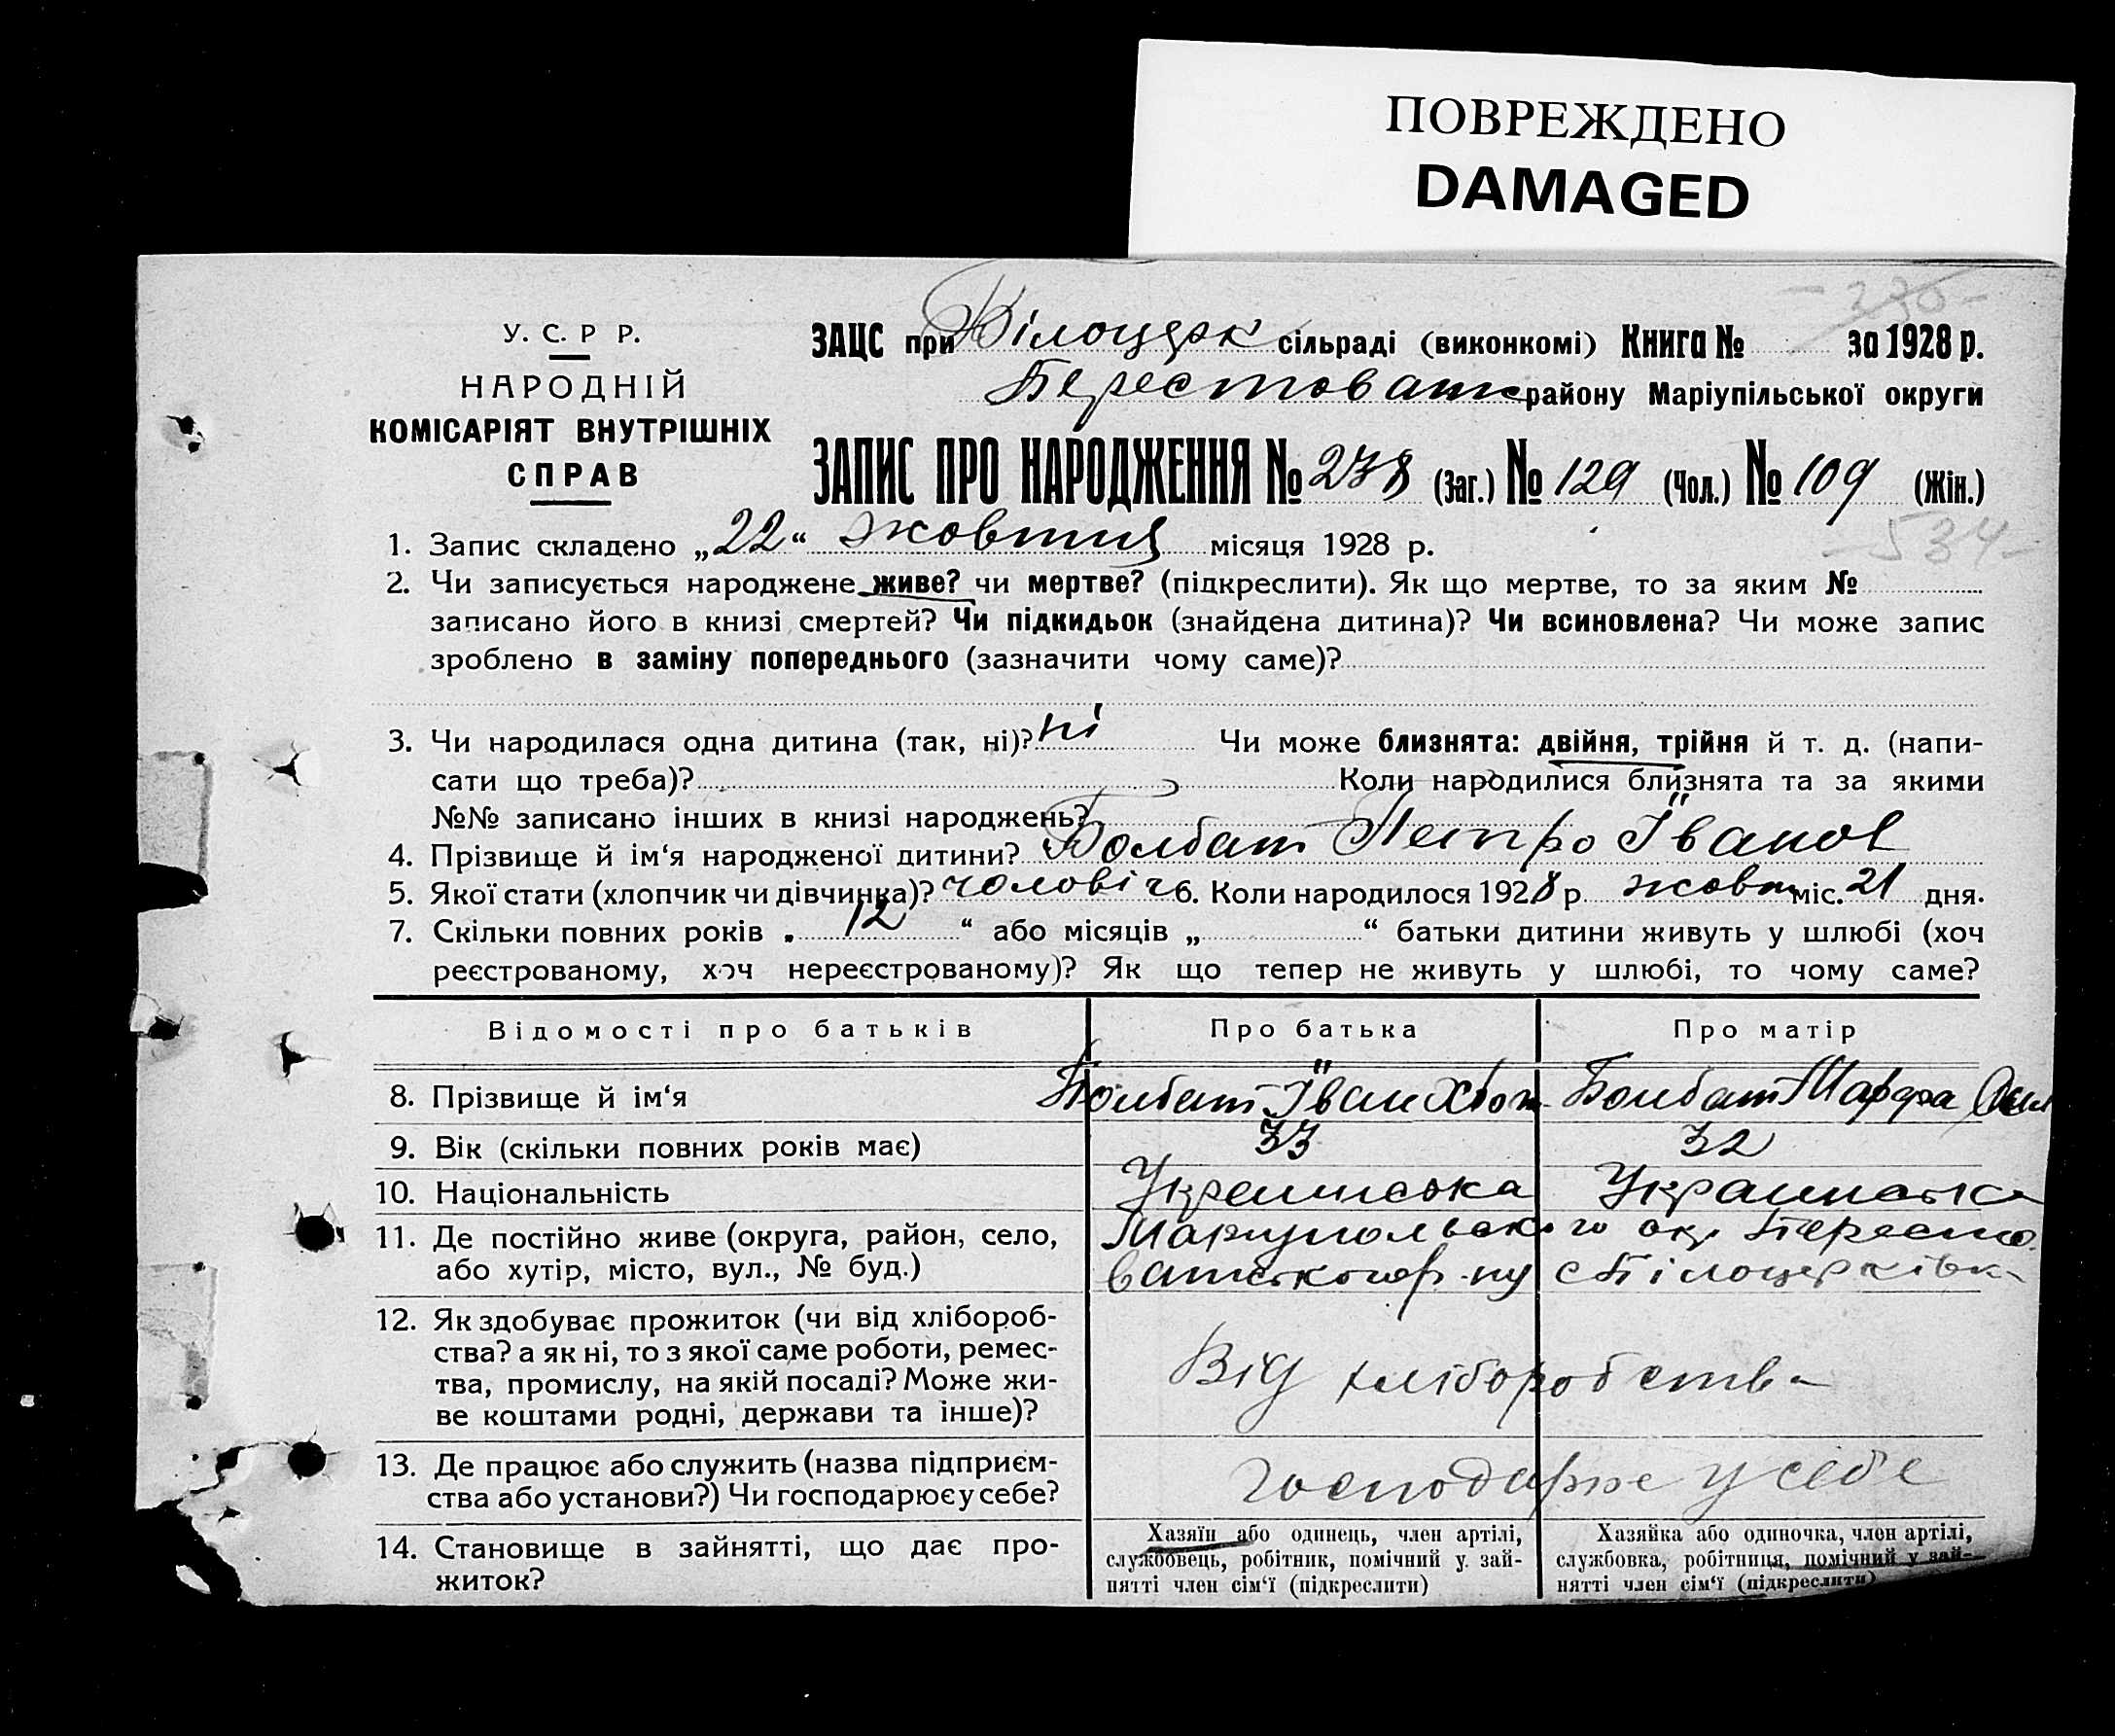 ПОВРЕЖДЕНО
DAMAGED
- 230 -
У. С. Р Р.
НАРОДНІЙ
КОМІСАРІЯТ ВНУТРІШНІХ
СПРАВ
ЗАЦС при Білоцерк сільраді (виконкомі) Книга № за 1928 р.
Берестоватс району Маріупільської округи
ЗАПИС ПРО НАРОДЖЕННЯ № 238 (Заг.) № 129 (Чол.) № 109 (Жін.)
- 534 -
1. Запис складено „22“ жовтня місяця 1928 р.
2. Чи записується народжене живе? чи мертве? (підкреслити). Як що мертве, то за яким №
записано його в книзі смертей? Чи підкидьок (знайдена дитина)? Чи всиновлена? Чи може запис
зроблено в заміну попереднього (зазначити чому саме)?
3. Чи народилася одна дитина (так, ні)? ні Чи може близнята: двійня, трійня й т. д. (напи-
сати що треба)? Коли народилися близнята та за якими
№№ записано інших в книзі народжень?
4. Прізвище й ім‘я народженої дитини? Болбат Петро Іванов
5. Якої стати (хлопчик чи дівчинка)? чоловіч 6. Коли народилося 1928 р. жовт міс. 21 дня.
7. Скільки повних років „ 12 “ або місяців „ “ батьки дитини живуть у шлюбі (хоч
реєстрованому, хоч нереєстрованому)? Як що тепер не живуть у шлюбі, то чому саме?
Відомості про батьків Про батька Про матір
8. Прізвище й ім‘я Болбат Іван Болбат Марфа
9. Вік (скільки повних років має) 33 32
10. Національність Українська Українська
11. Де постійно живе (округа, район, село, Маріупольського окр. Бересто
або хутір, місто, вул., № буд.) ватського р-ну с Білоцерківк
12. Як здобуває прожиток (чи від хлібороб-
ства? а як ні, то з якої саме роботи, ремес-
тва, промислу, на якій посаді? Може жи-
ве коштами родні, держави та інше)? Від хліборобства
13. Де працює або служить (назва підприєм-
ства або установи?) Чи господарює у себе? господарює у себе
14. Становище в зайнятті, що дає про-
житок?
Хазяїн або одинець, член артілі,
службовець, робітник, помічний у зай-
нятті член сім‘ї (підкреслити)
Хазяйка або одиночка, член артілі,
службовка, робітниця, помічний у зай-
нятті член сім‘ї (підкреслити)